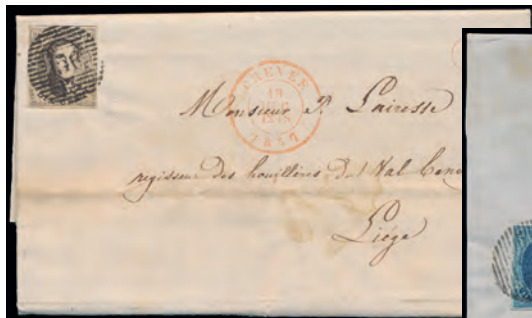 CHENEE
18
1857
Monsieur P. Lairesse
regisseur des houillères du Val Benoi
Liége